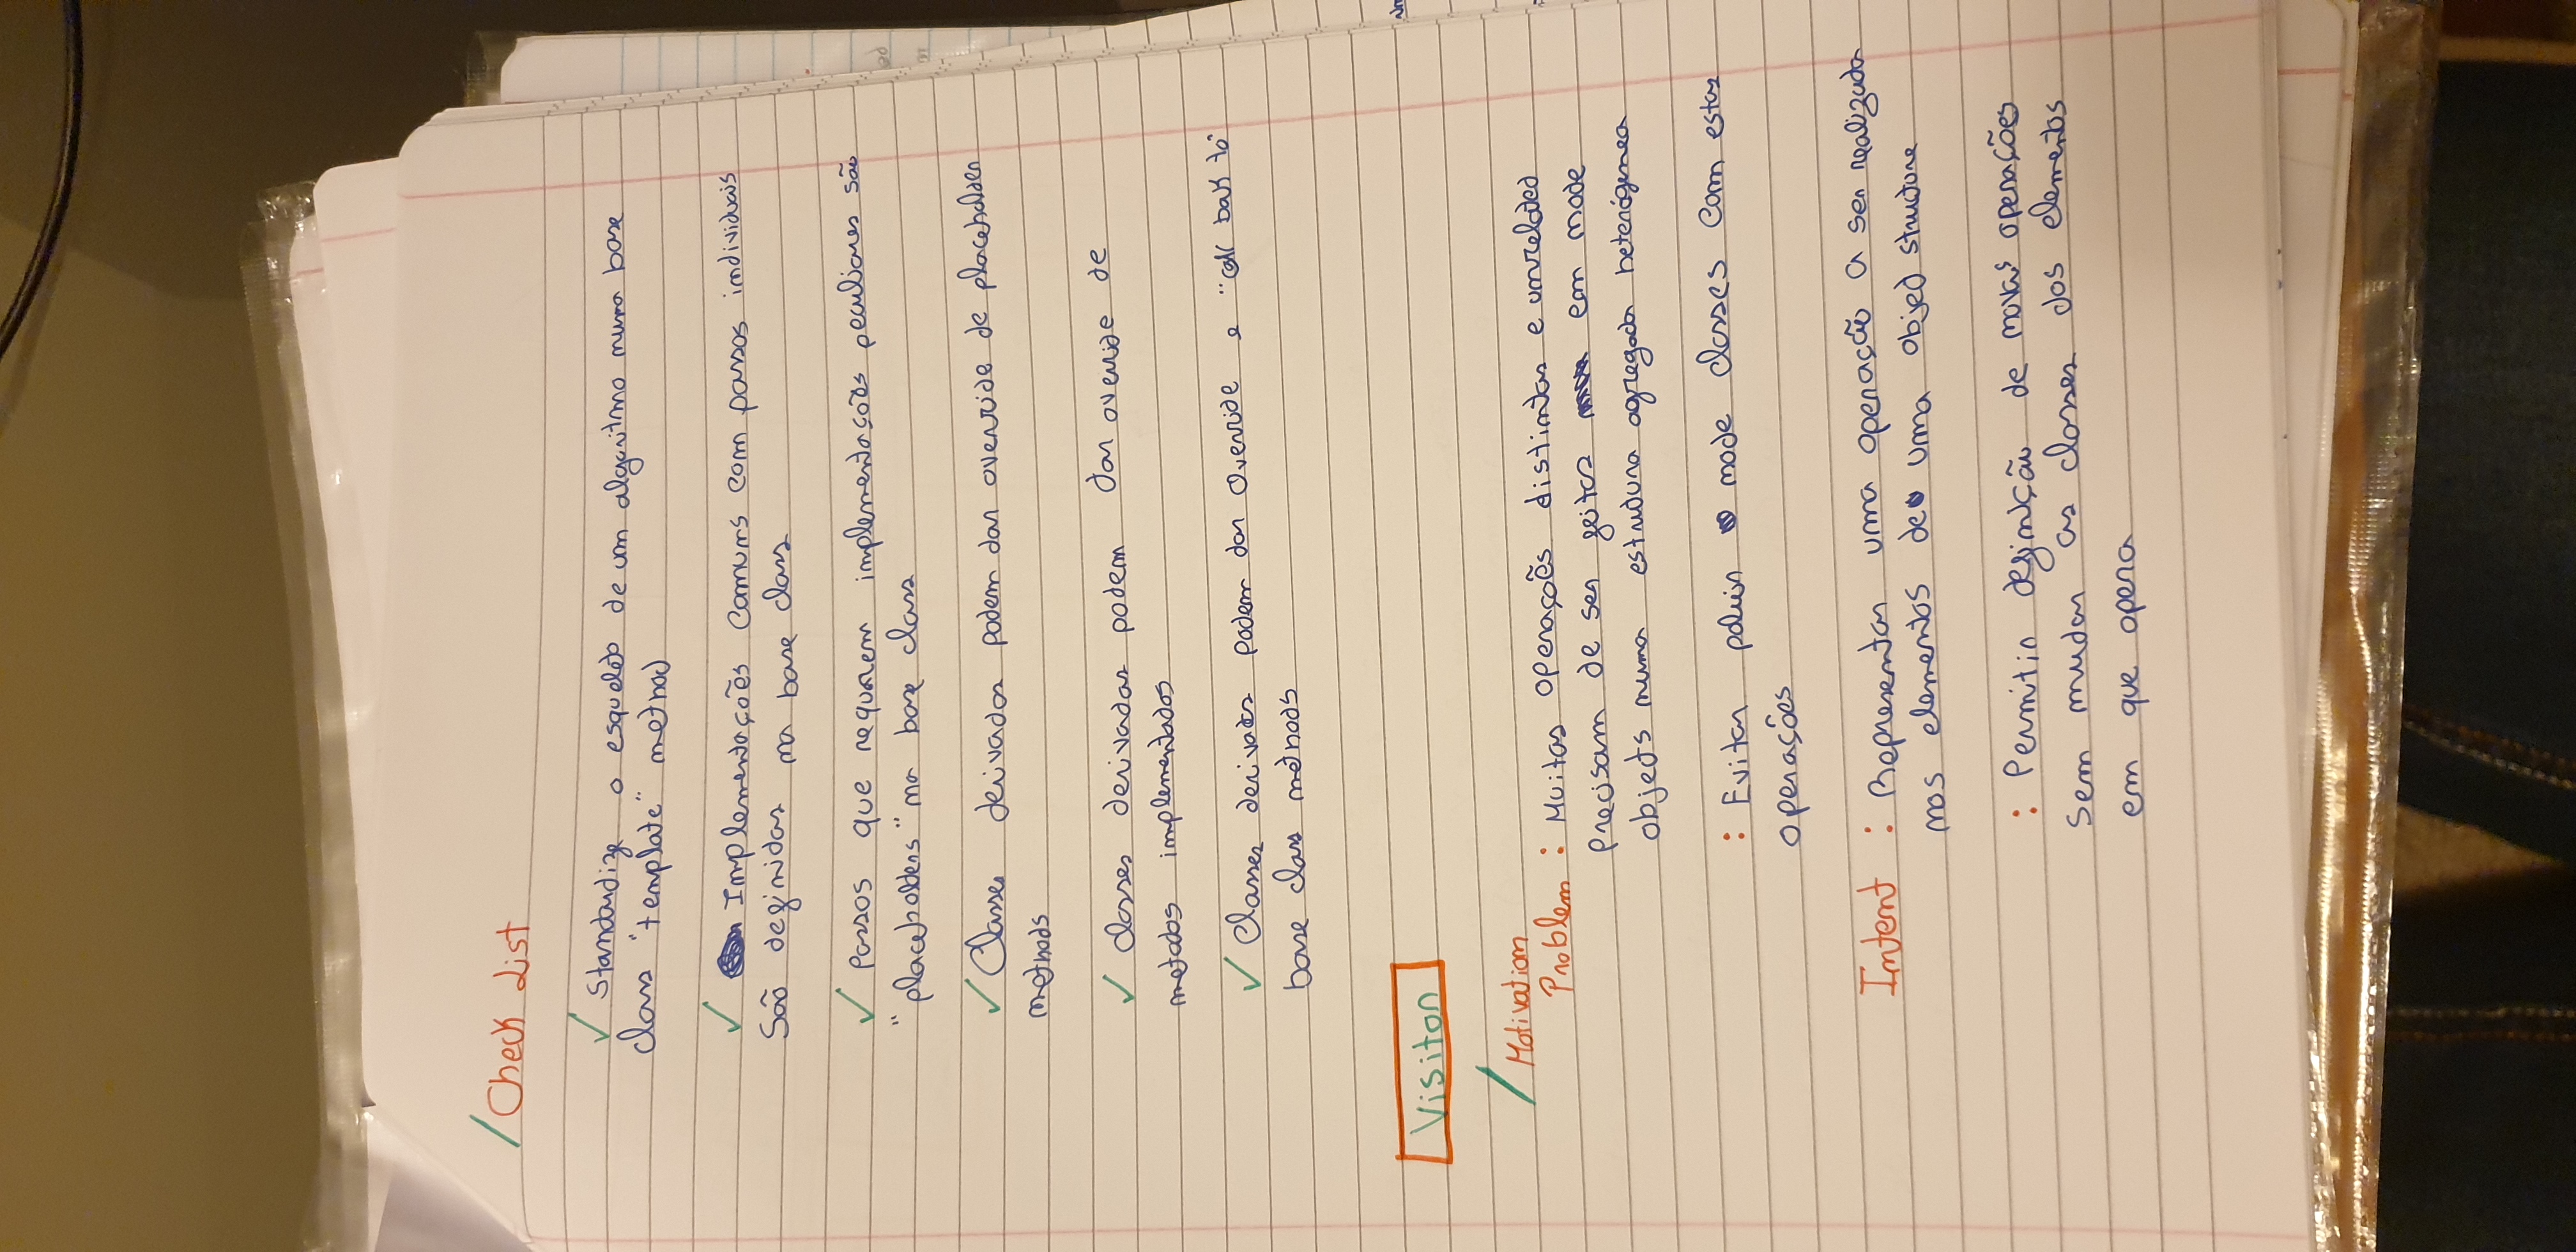 / Check List
✓ Standardize o esqueleto de um algoritmo numa base
class "template" method
✓ Implementações comuns com passos individuais
São definidas na base class
✓ Passos que requerem implementações peculiares são
"placeholders" na base class
✓ Classes derivadas podem dar override de placeholder
methods
✓ Classes derivadas podem dar override de
metodos implementados
✓ Classes derivadas podem dar override e "call back to"
base class methods
Visitor
/ Motivation
Problem : Muitas operações distintas e unrelated
precisam de ser feitas em node
objects numa estrutura agregada heterógenea
: Evitar poluir node classes com estas
operações
Intent : Representar uma operação a ser realizada
nos elementos de uma object structure
: Permitir definição de novas operações
sem mudar as classes dos elementos
em que opera